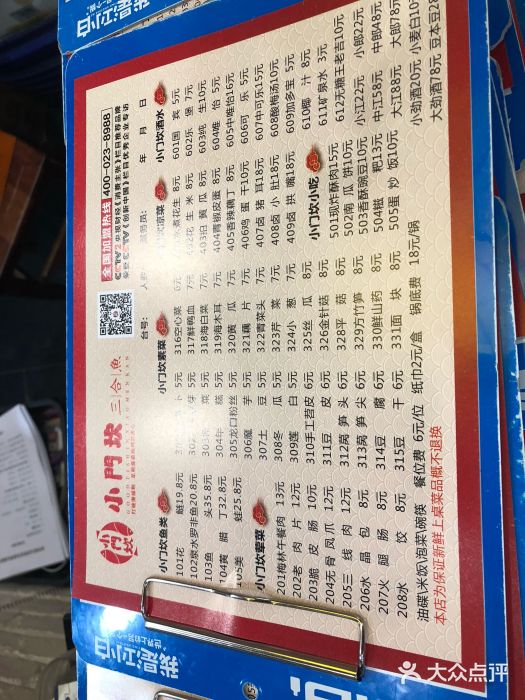 我是江小白
小門坎 三合魚
全国加盟热线 400-023-8988
台号:
年 月 日
小门坎鱼类
101花 鲢19.8元
102泉水罗非鱼20.8元
103鱼 头35.8元
104黄 腊 丁32.8元
105美 蛙25.8元
小门坎荤菜
201梅林午餐肉 13元
202老 肉 片 12元
203脆 皮 肠 10元
204无 骨 凤 爪 12元
205三 线 肉 12元
206水 晶 包 8元
207火 腿 肠 8元
208水 饺 8元
小门坎素菜
5元
5元
5元
304年 糕 5元
305龙口粉丝 5元
306魔 芋 5元
307土 豆 5元
308冬 瓜 5元
309莲 白 5元
310手工苕皮 6元
311豆 皮 6元
312莴 笋 头 6元
313莴 笋 尖 6元
314豆 腐 6元
315豆 干 6元
316空心菜 6元
317鲜鸭血 7元
318海白菜 7元
319海木耳 7元
320黄 瓜 7元
321藕 片 7元
322青菜头 7元
323芹 菜 7元
324小 葱 7元
325丝 瓜 8元
326金针菇 8元
328平 菇 8元
329方竹笋 8元
330鲜山药 8元
331面 块 8元
小门坎凉菜
水煮花生 8元
402花 生 米 8元
403拍 黄 瓜 8元
404青椒皮蛋 8元
405香辣藕丁 8元
406鸡 蛋 干10元
407卤 猪 耳18元
408卤 小 肚18元
409卤 拱 嘴18元
小门坎小吃
501现炸酥肉15元
502南 瓜 饼10元
503香酥豌豆10元
504糍 粑13元
505蛋 炒 饭10元
小门坎酒水
601国 宾 5元
602乐 堡 7元
603纯 生10元
604唯 怡 5元
605中唯怡16元
606可 乐 5元
607中可乐15元
608酸梅汤10元
609加多宝 5元
610椰 汁 8元
611矿泉水 3元
612无糖王老吉10元
小江22元 小郎22元
中江58元 中郎48元
大江88元 大郎78元
小劲酒20元 小麦白10元
大劲酒78元
油碟\米饭\泡菜\碗筷 餐位费 6元/位 纸巾2元/盒 锅底费 18元/锅
本店为保证新鲜上桌菜品概不退换
我是江小白
世界上的另一个我
大众点评